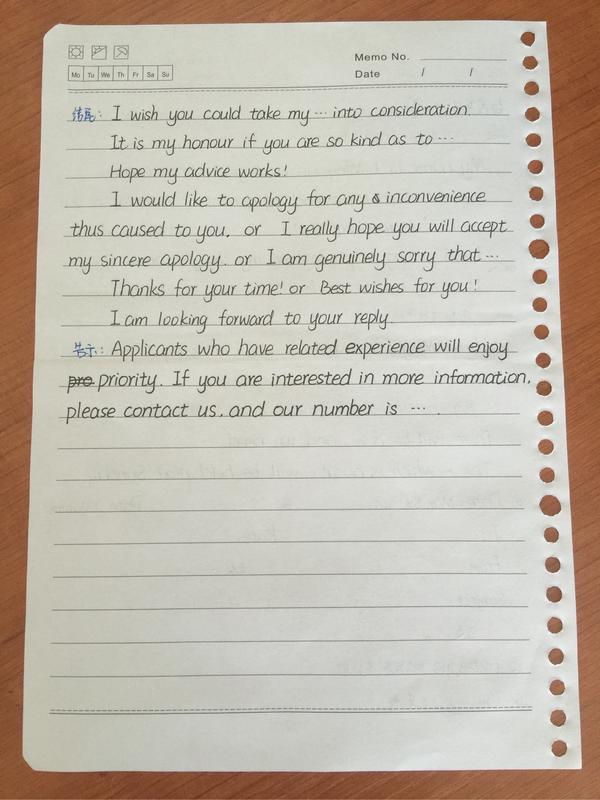 Memo No.
Mo Tu We Th Fr Sa Su
Date / /
结尾: I wish you could take my ... into consideration.
It is my honour if you are so kind as to ...
Hope my advice works!
I would like to apology for any inconvenience
thus caused to you. or I really hope you will accept
my sincere apology. or I am genuinely sorry that ...
Thanks for your time! or Best wishes for you!
I am looking forward to your reply.
告示: Applicants who have related experience will enjoy
pro priority. If you are interested in more information,
please contact us, and our number is ... .